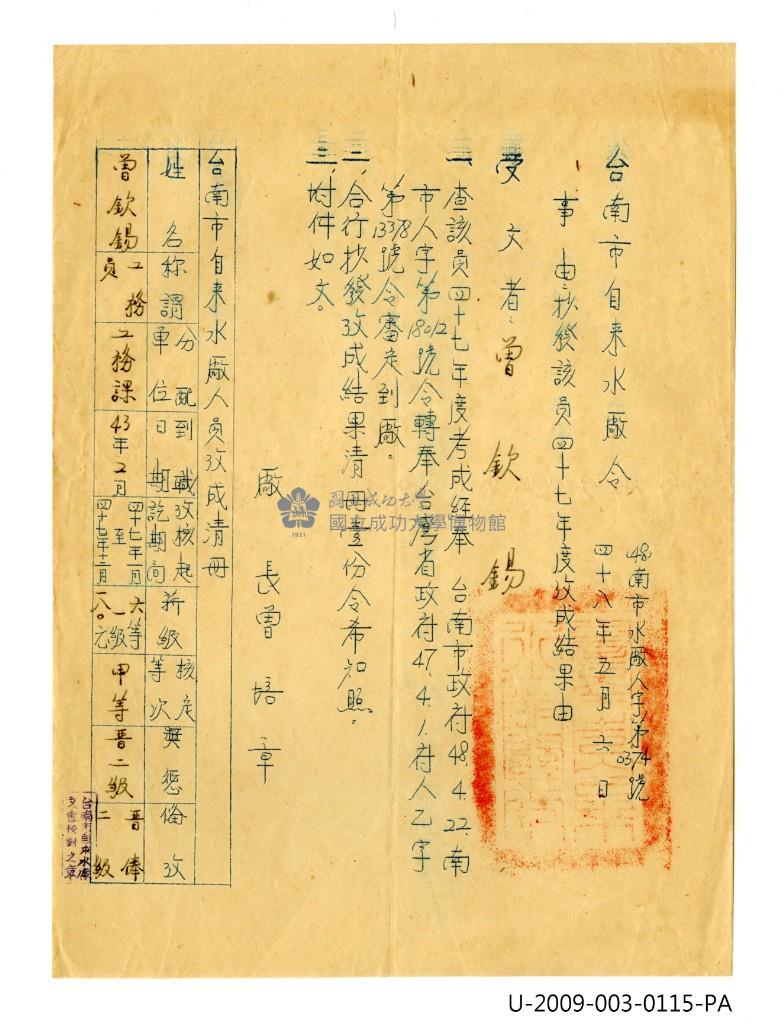 台南市自来水廠令
48南市水廠人字第0374號
四十八年五月六日
事由:抄發該員四十七年度攷成結果由
受文者:曾欽錫
一、查該員四十七年度考成経奉 台南市政府48.4.22.南
市人字第18012號令轉奉台灣省政府47.4.1.府人乙字
第1338號令審定到廠。
二、合行抄發攷成結果清冊壹份令希知照。
三、附件如文。
廠長曾培章
台南市自来水廠人員攷成清冊
姓名 称謂 分配單位 到職日期 攷核起訖期间 薪級 核定等次 奬懲 偹攷
曾欽錫 工務員 工務課 43年2月 四十七年一月至四十七年十二月 六等一級一八〇元 甲等 晋二級 晋俸二級
台南市自来水廠
文書校對之章
國立成功大學
國立成功大學博物館
1931
U-2009-003-0115-PA